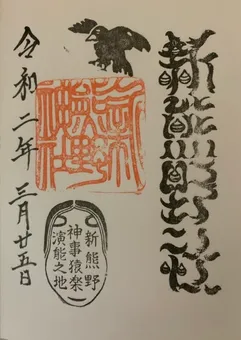 新熊野神社
新熊野
神事猿楽
演能之地
令和二年三月廿五日